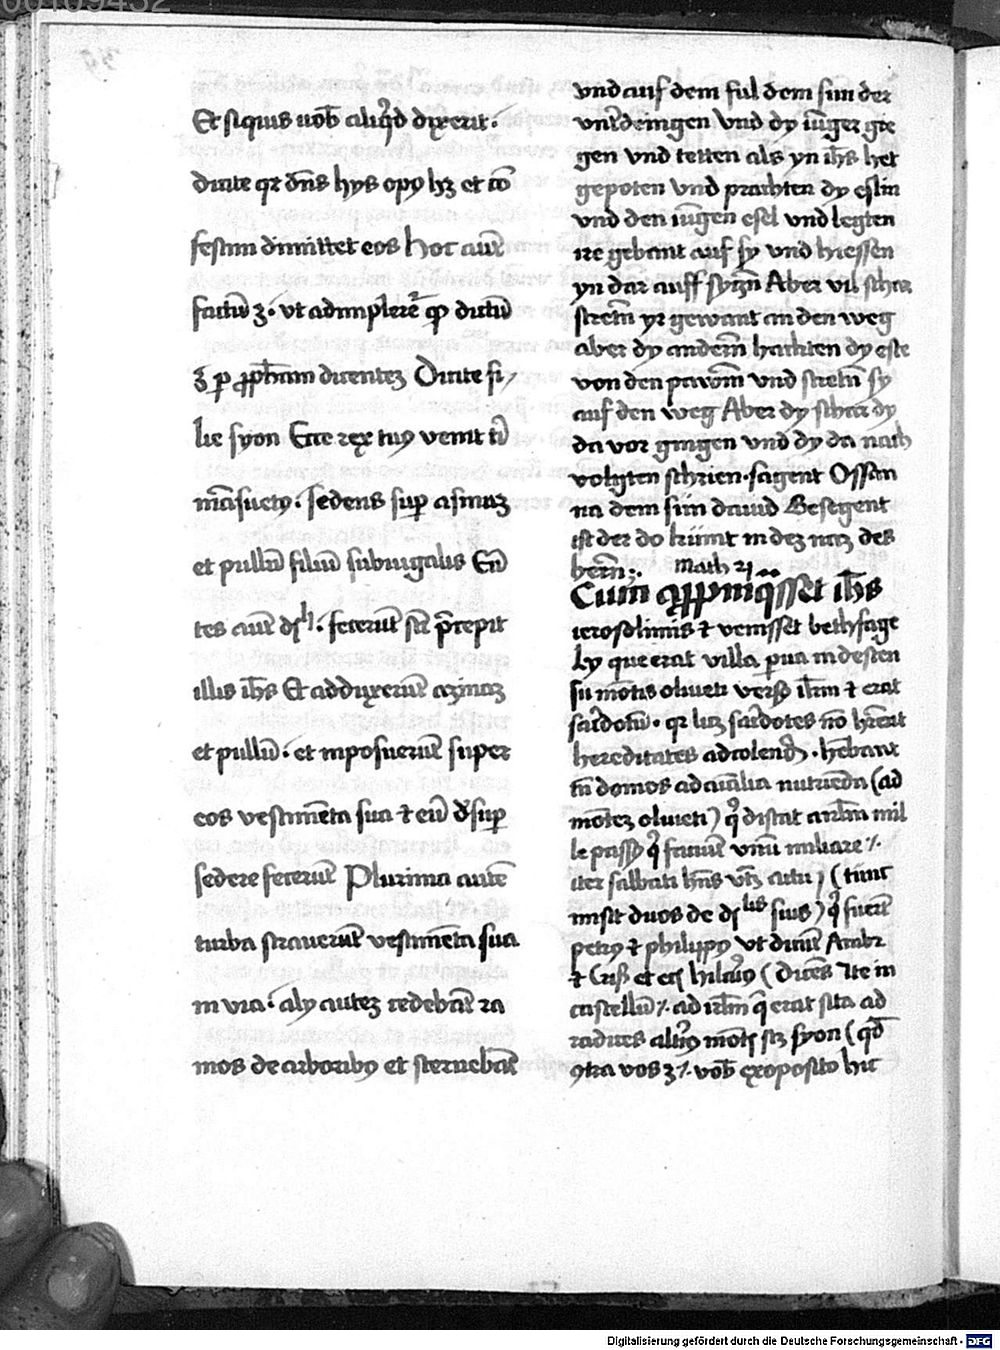 Et siquis uob̄ aliq̄d dixerit .
dicite qr dn̄s hys opꝰ hꝫ et cō
festim dimittet eos Hoc aut̄
factū ꝫ . vt adimpleret̄ qd̄ dictū
ꝫ per ꝓph̄am dicentez Dicite fi,
lie syon Ecce rex tuꝰ venit ti
māsuetꝰ . sedens sup asinaz
et pullū filiū subiugalis Eū
tes aut̄ dsˡⁱ . fecerūt sic̄ p̄cepit
illis ih̄s Et adduxerūt azinaz
et pullū . et inposuerūt super
eos vestimēta sua ⁊ eū d̄sup
sedere fecerūt Plurima autē
turba strauerūt vestimēta sua
in via . alÿ autez cedebāt ra
mos de arboribꝰ et sternebāt
vnd auf dem ful dem sun der
vnd'deingen Vnd dy iūger gie
gen vnd tetten als yn ih̄s het
gepoten Vnd prachten dy eslin
vnd den iūgen esel vnd legten
ire gebant auf sy vnd hiessen
yn dar auff syczn̄ Aber vil schar
stretn̄ yr gewant an den weg
aber dy andern̄ hachten dy este
von den pawm̄ vnd stretn̄ sy
auf den weg Aber dy schar dy
da vor gingen vnd dy da nach
volgten schrien . sagent Ossan
na dem sūn dauid Gesegent
ist der do kūmt in dez naz des
herrn̄ : Math 21
Cum appropinq̄sset ih̄s
ierosolimis ⁊ venisset bethfage
Ly que erat villa parua in desten
su mōtis oliueti versꝰ ihr̄m ⁊ erat
sac̄dotū . qr licz sac̄dotes nō hr̄ent
hereditates ad colend̄ , . hēbant
tn̄ domos ad aīalia nutriēda (ad
mōtez oliueti) q̄ distat a ihr̄lm mil
le passꝰ q̄ faciūt vnū miliare ⁒
iter sabbati hn̄s . (tunc
misit duos de dsˡⁱˢ suis) q̄ fuerūt
petrꝰ ⁊ philippꝰ vt dicūt Ambr
⁊ Crisꝰ et hilariꝰ (Dicēs Ite in
castellū ⁒ ad ihr̄lm q̄ erat sita ad
radices altiꝰ mōtis syon (qd̄
ꝯtra vos ꝫ ⁒ vob̄ exoposito hic